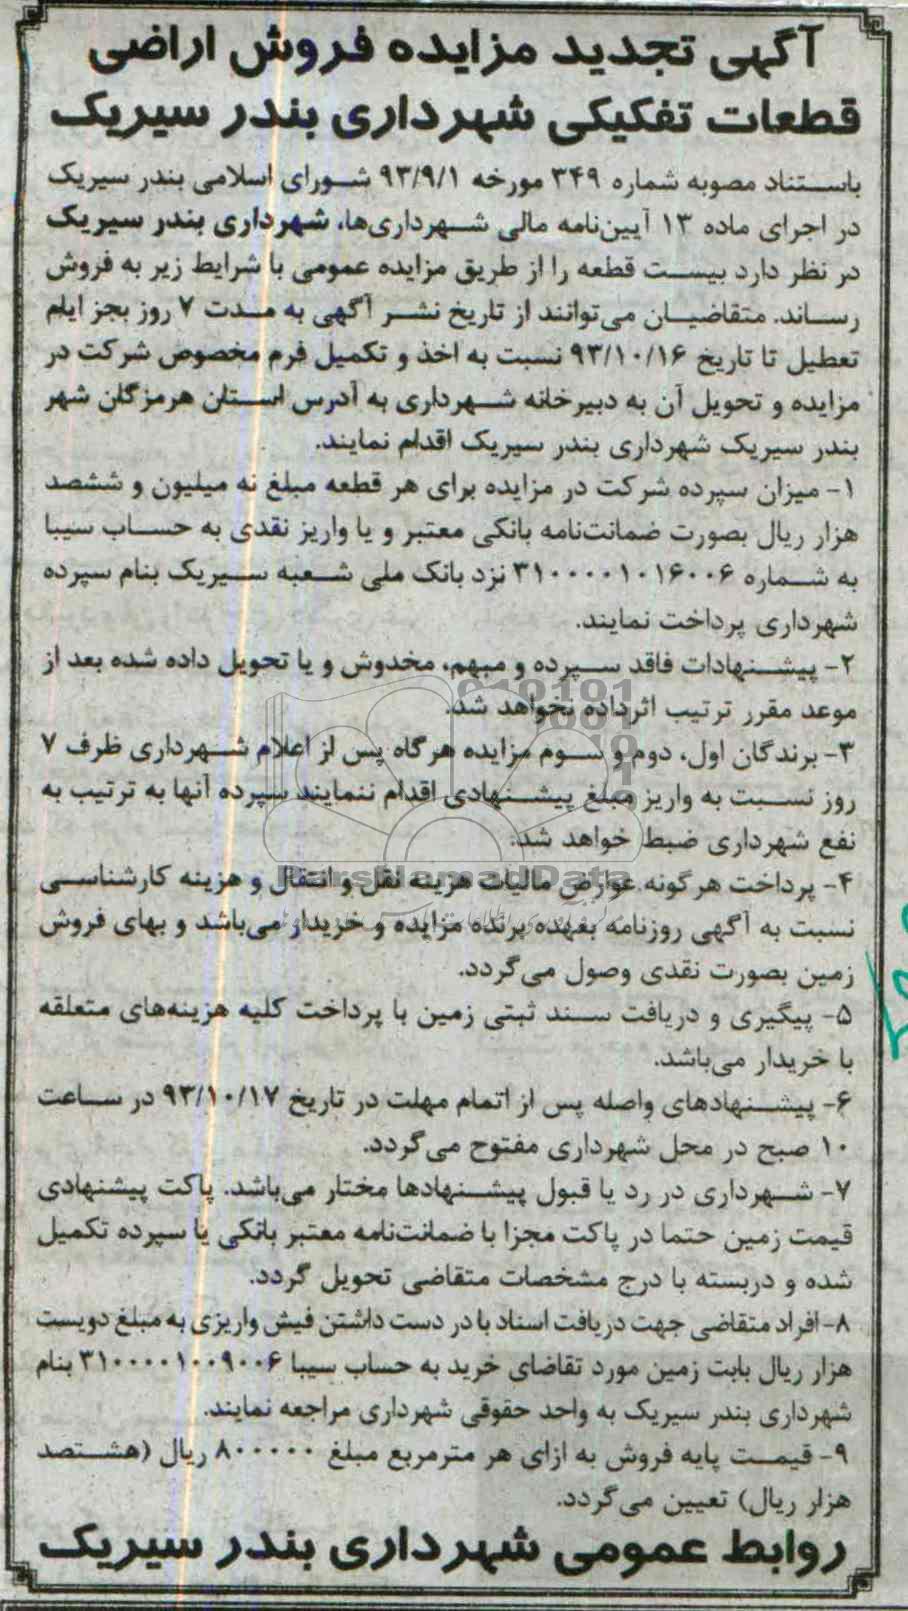 آگهی تجدید مزایده فروش اراضی
قطعات تفکیکی شهرداری بندر سیریک
باستناد مصوبه شماره ۳۴۹ مورخه ۹۳/۹/۱ شورای اسلامی بندر سیریک
در اجرای ماده ۱۳ آیین‌نامه مالی شهرداری‌ها، شهرداری بندر سیریک
در نظر دارد بیست قطعه را از طریق مزایده عمومی با شرایط زیر به فروش
رساند. متقاضیان می‌توانند از تاریخ نشر آگهی به مدت ۷ روز بجز ایام
تعطیل تا تاریخ ۹۳/۱۰/۱۶ نسبت به اخذ و تکمیل فرم مخصوص شرکت در
مزایده و تحویل آن به دبیرخانه شهرداری به آدرس استان هرمزگان شهر
بندر سیریک شهرداری بندر سیریک اقدام نمایند.
۱- میزان سپرده شرکت در مزایده برای هر قطعه مبلغ نه میلیون و ششصد
هزار ریال بصورت ضمانت‌نامه بانکی معتبر و یا واریز نقدی به حساب سیبا
به شماره ۳۱۰۰۰۰۱۰۱۶۰۰۶ نزد بانک ملی شعبه سیریک بنام سپرده
شهرداری پرداخت نمایند.
۲- پیشنهادات فاقد سپرده و مبهم، مخدوش و یا تحویل داده شده بعد از
موعد مقرر ترتیب اثرداده نخواهد شد.
۳- برندگان اول، دوم و سوم مزایده هرگاه پس از اعلام شهرداری ظرف ۷
روز نسبت به واریز مبلغ پیشنهادی اقدام ننمایند سپرده آنها به ترتیب به
نفع شهرداری ضبط خواهد شد.
ParsNamadData
۴- پرداخت هرگونه عوارض مالیات هزینه نقل و انتقال و هزینه کارشناسی
نسبت به آگهی روزنامه بعهده برنده مزایده و خریدار می‌باشد و بهای فروش
زمین بصورت نقدی وصول می‌گردد.
۵- پیگیری و دریافت سند ثبتی زمین با پرداخت کلیه هزینه‌های متعلقه
با خریدار می‌باشد.
۶- پیشنهادهای واصله پس از اتمام مهلت در تاریخ ۹۳/۱۰/۱۷ در ساعت
۱۰ صبح در محل شهرداری مفتوح می‌گردد.
۷- شهرداری در رد یا قبول پیشنهادها مختار می‌باشد. پاکت پیشنهادی
قیمت زمین حتما در پاکت مجزا با ضمانت‌نامه معتبر بانکی یا سپرده تکمیل
شده و دربسته با درج مشخصات متقاضی تحویل گردد.
۸- افراد متقاضی جهت دریافت اسناد با در دست داشتن فیش واریزی به مبلغ دویست
هزار ریال بابت زمین مورد تقاضای خرید به حساب سیبا ۳۱۰۰۰۰۱۰۰۹۰۰۶ بنام
شهرداری بندر سیریک به واحد حقوقی شهرداری مراجعه نمایند.
۹- قیمت پایه فروش به ازای هر مترمربع مبلغ ۸۰۰۰۰۰ ریال (هشتصد
هزار ریال) تعیین می‌گردد.
روابط عمومی شهرداری بندر سیریک